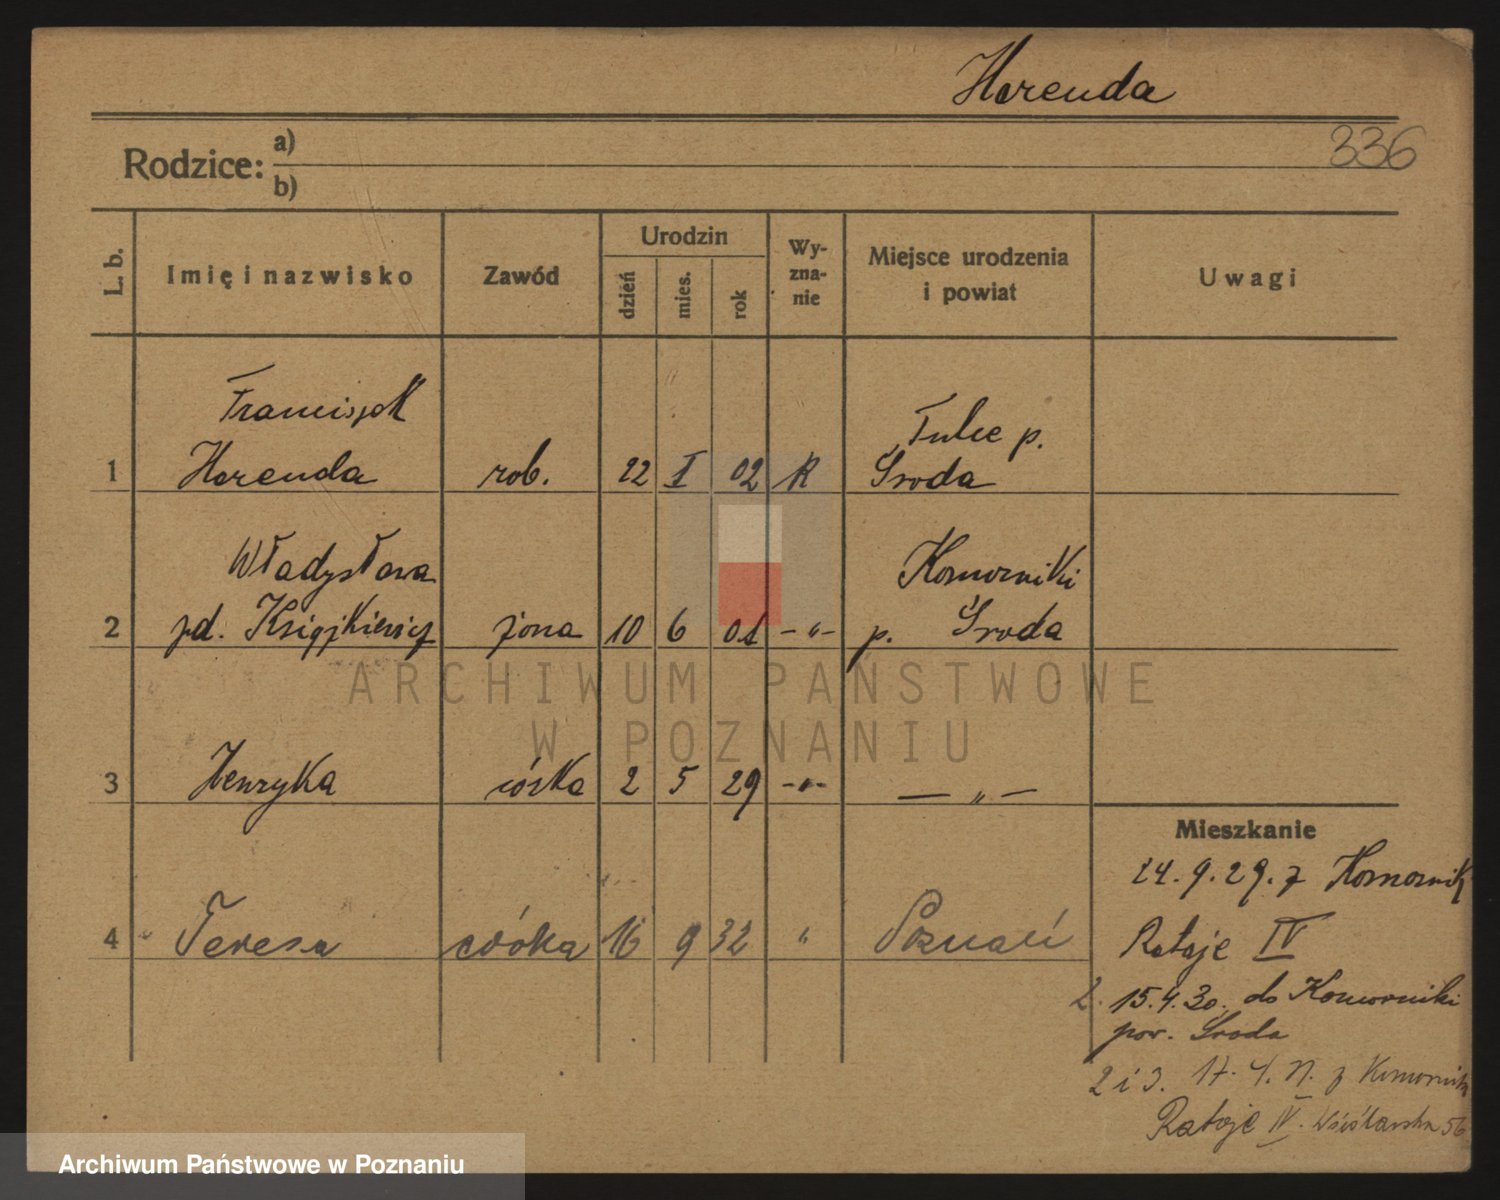 Harenda
336
Rodzice: a)
b)
L. b.
Imię i nazwisko
Zawód
Urodzin
dzień
mies.
rok
Wy-
zna-
nie
Miejsce urodzenia
i powiat
Uwagi
Franciszek
Tulce p.
1 Harenda rob. 22 I 02 R Środa
Władysława
Komorniki
2 zd. Książkiewicz żona 10 6 01 -"- p. Środa
3 Henryka córka 2 5 29 -"- — " —
Mieszkanie
24.9.29. z Komornik
4 Teresa córka 16 9 32 " Poznań
Rataje IV
2. 15.4.30. do Komorniki
pow. Środa
2 i 3. 17. 4. z Komornik
Rataje IV. 56
ARCHIWUM PAŃSTWOWE
W POZNANIU
Archiwum Państwowe w Poznaniu